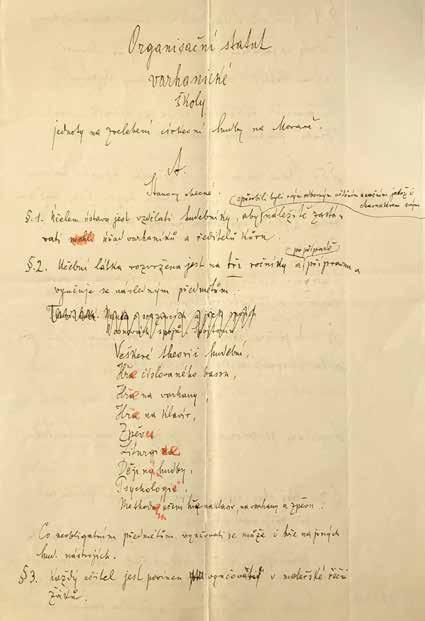 Organisační statut
varhanické
školy
jednoty na zvelebení církevní hudby na Moravě.
A.
Stanovy obecné.
způsobilí byli svým odborným věděním jakož i
charakterem svým
§. 1. Účelem ústavu jest vzdělati hudebníky, aby náležitě zastá-
vati mohli úřad varhaníků a ředitelů kůru.
po případě
§ 2. Učební látka rozvržena jest na tři ročníky a
vyučuje se následným předmětům.
Veškeré theorii hudební,
Hře číslovaného bassu,
Hře na varhany,
Hře na klavír,
Zpěvu
Liturgice
Dějinám hudby,
Psychologii,
Methodě učení hře na klavír, na varhany a zpěvu.
Co neobligatním předmětům vyučovati se může i hře na jiných
hud. nástrojích.
§ 3. Každý učitel jest povinen vyučovati v mateřské řeči
žáků.